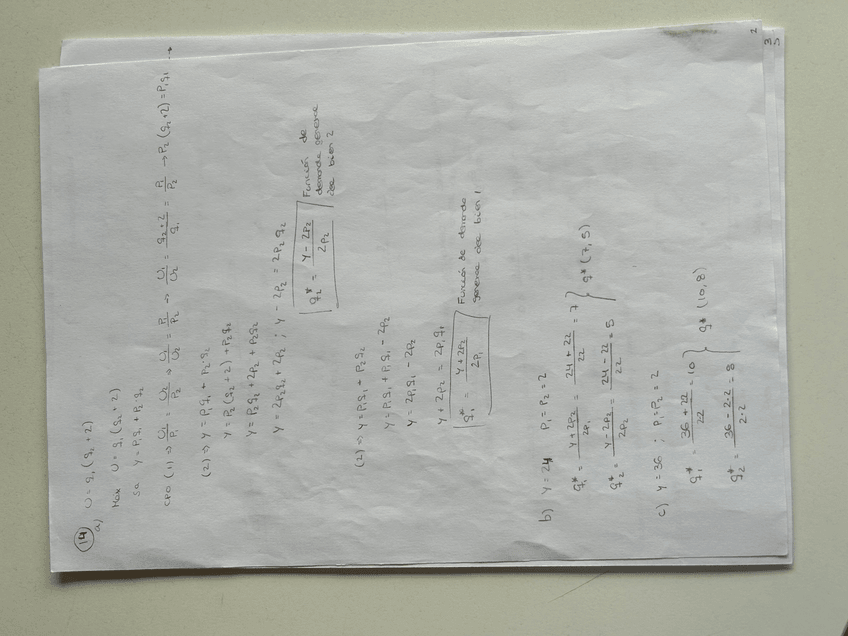 14 U = q1 (q2 + 2)
a)
Max U = q1 (q2 + 2)
sa Y = P1 q1 + P2 · q2
CPO (1) ⇒ U1/P1 = U2/P2 ⇒ U1/U2 = P1/P2 ⇒ U1/U2 = (q2 + 2)/q1 = P1/P2 → P2 (q2 + 2) = P1 q1 →
(2) ⇒ Y = P1 q1 + P2 · q2
Y = P2 (q2 + 2) + P2 q2
Y = P2 q2 + 2P2 + P2 q2
Y = 2P2 q2 + 2P2 ; Y - 2P2 = 2P2 q2
q2* = (Y - 2P2)/(2P2) Función de
demanda general
del bien 2
(2) ⇒ Y = P1 q1 + P2 q2
Y = P1 q1 + P1 q1 - 2P2
Y = 2P1 q1 - 2P2
Y + 2P2 = 2P1 q1
q1* = (Y + 2P2)/(2P1) Función de demanda
general del bien 1
b) Y = 24 P1 = P2 = 2
q1* = (Y + 2P2)/(2P1) = (24 + 22)/22 = 7
q2* = (Y - 2P2)/(2P2) = (24 - 22)/22 = 5 } q* (7, 5)
c) Y = 36 ; P1 = P2 = 2
q1* = (36 + 22)/22 = 10
q2* = (36 - 2·2)/(2·2) = 8 } q* (10, 8)
2
3
5